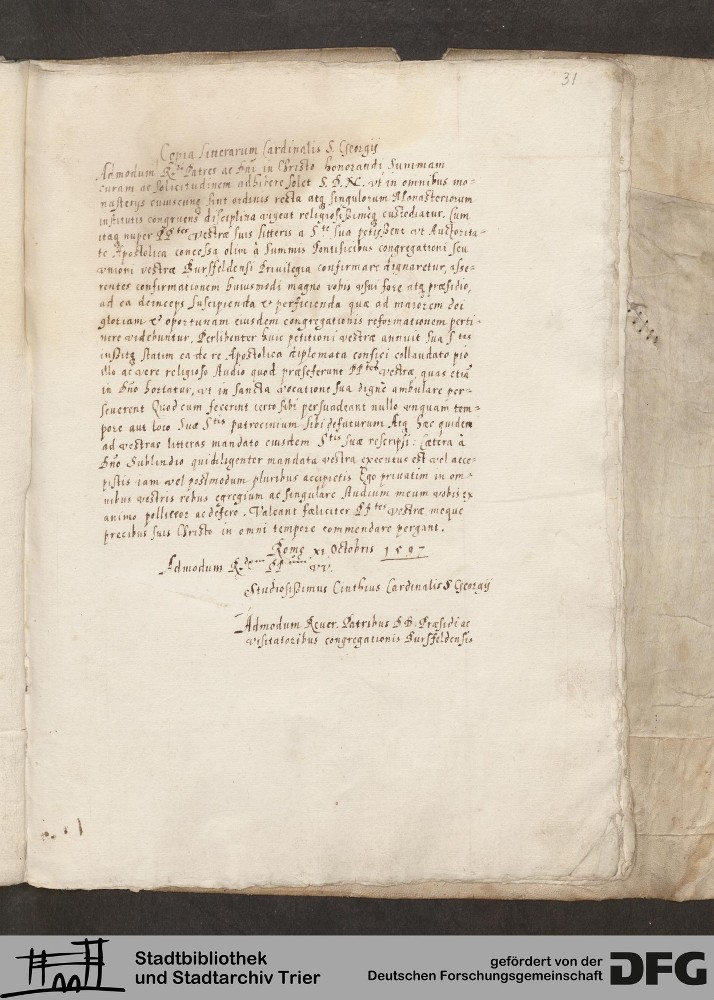 31
Copia litterarum Cardinalis S. Georgij
Admodum R.di Patres ac Dñi in Christo honorandi Summam
curam ac solicitudinem adhibere solet S. D. N. vt in omnibus mo=
nasterijs cuiuscunq sint ordinis recta atq singulorum Monasteriorum
institutis congruens disciplina vigeat religiosissimeq custodiatur. Cum
itaq nuper PP.tes vestræ suis litteris a S.te sua petissent vt Auctorita=
te Apostolica concessa olim à Summis Pontificibus congregationi seu
vnioni vestræ Bursfeldensi Privilegia confirmare dignaretur, asse=
rentes confirmationem huiusmodi magno vobis vsui fore atq præsidio,
ad ea deinceps suscipienda & perficienda quæ ad maiorem dei
gloriam & oportunam eiusdem congregationis reformationem perti=
nere videbuntur. Perlibenter huic petitioni vestræ annuit sua S.tas
iussitq statim ea de re Apostolica diplomata confici collaudato pio
illo ac vere religioso studio quod præseferunt PP.tes vestræ, quas etiã
in Dño hortatur, vt in sancta vocatione sua digne ambulare per=
severent Quod cum fecerint certo sibi persuadeant nullo vnquam tem=
pore aut loco suæ S.tis patrocinium sibi defuturum. Atq hæc quidem
ad vestras litteras mandato eiusdem S.tis suæ rescripsi: Cætera à
Dño Sublindio qui diligenter mandata vestra executus est vel acce=
pistis iam vel postmodum pluribus accipietis Ego privatim in om=
nibus vestris rebus egregium ac singulare studium meum vobis ex
animo polliceor ac defero. Valeant fæliciter PP.tes vestræ meque
precibus suis Christo in omni tempore commendare pergant.
Romę xi Octobris 1597
Admodum R. PP. VV.
Studiosissimus Cinthius Cardinalis S Georgij
Admodum Rever. Patribus DD. Præsidi ac
visitatoribus congregationis Bursfeldensis
Stadtbibliothek
und Stadtarchiv Trier
gefördert von der
Deutschen Forschungsgemeinschaft
DFG